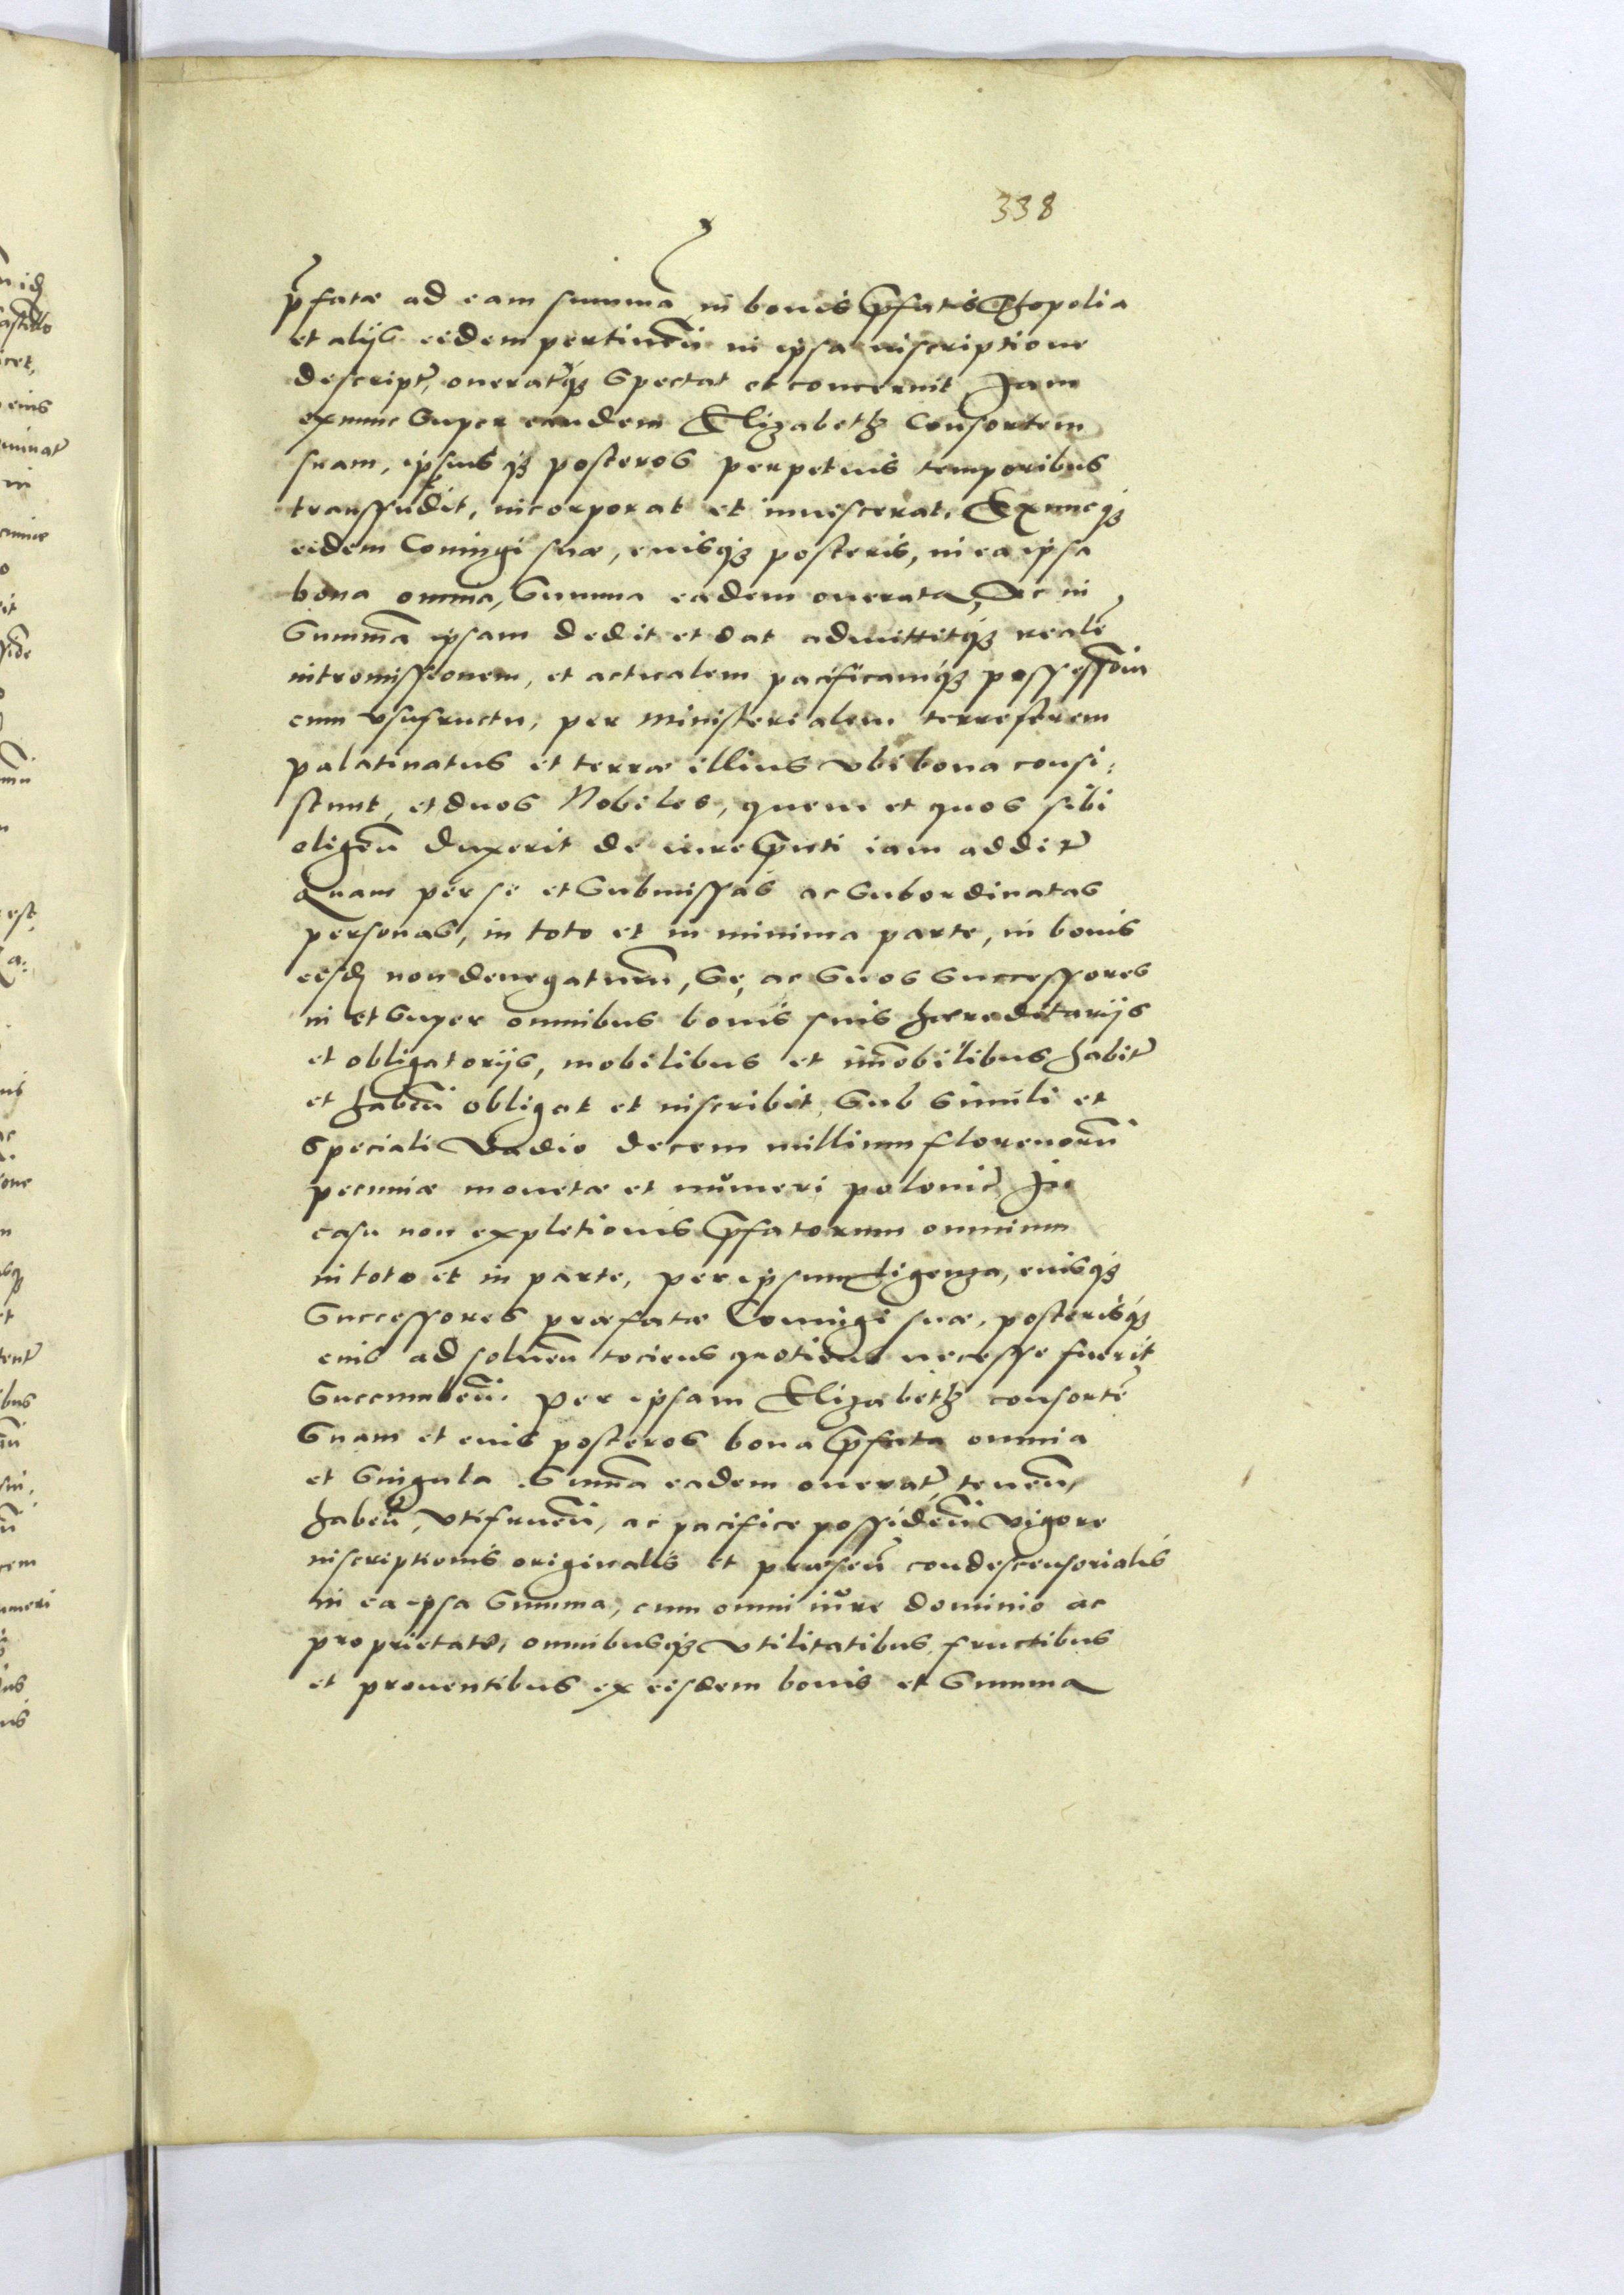 338
p̃fatæ ad eam summã in bonis p̃fatis Chopolia
et alijs eidem pertineñ in ipsa inscriptione
descript̃, onerat̃q₃ spectat et concernit Jam
exnunc super eandem Elizabeth Consortem
suam, ipsius q₃ posteros perpetuis temporibus
transfudit, incorporat et inuiscerat. Exnuncq₃
eidem Coniugi suæ, eiusq₃ posteris, in ea ipsa
bona omnia, summa eadem onerata, Ac in
summã ipsam dedit et dat admittitq₃ realẽ
intromissionem, et actualem pacificamq₃ possessioñ
cum vsufructu, per Ministerialem terrestrem
palatinatus et terræ illius vbi bona consi:
stunt, et duos Nobiles, quem et quos sibi
eligeñ duxerit de iure p̃nti iam addit̃
Quam per se et submissas ac subordinatas
personas, in toto et in minima parte, in bonis
eisd̃ non denegaturũ, se, ac suos successores
in et super omnibus bonis suis hæreditarijs
et obligatorijs, mobilibus et im̃obilibus habit̃
et habeñ obligat et inscribit, sub simili et
speciali Vadio decem millium florenorũ
pecuniæ monetæ et numeri polonic̃ In
casu non expletionis p̃fatorum omnium
in toto et in parte, per ipsum Ligenza, eiusq₃
successores præfatæ Coniugi suæ, posterisq₃
eius ad solueñ tociens quotiens necesse fuerit
succumbeñ. per ipsam Elizabeth consortẽ
suam et eius posteros bona p̃fata omnia
et singula sum̃a eadem onerat̃, teneñ,
habeñ, vtifrueñ, ac pacifice possideñ vigore
inscriptionis originalis et præseñ condescensorialis
in ea ipsa summa, cum omni iure dominio ac
proprietate, omnibusq₃ vtilitatibus, fructibus
et prouentibus ex eisdem bonis et summa